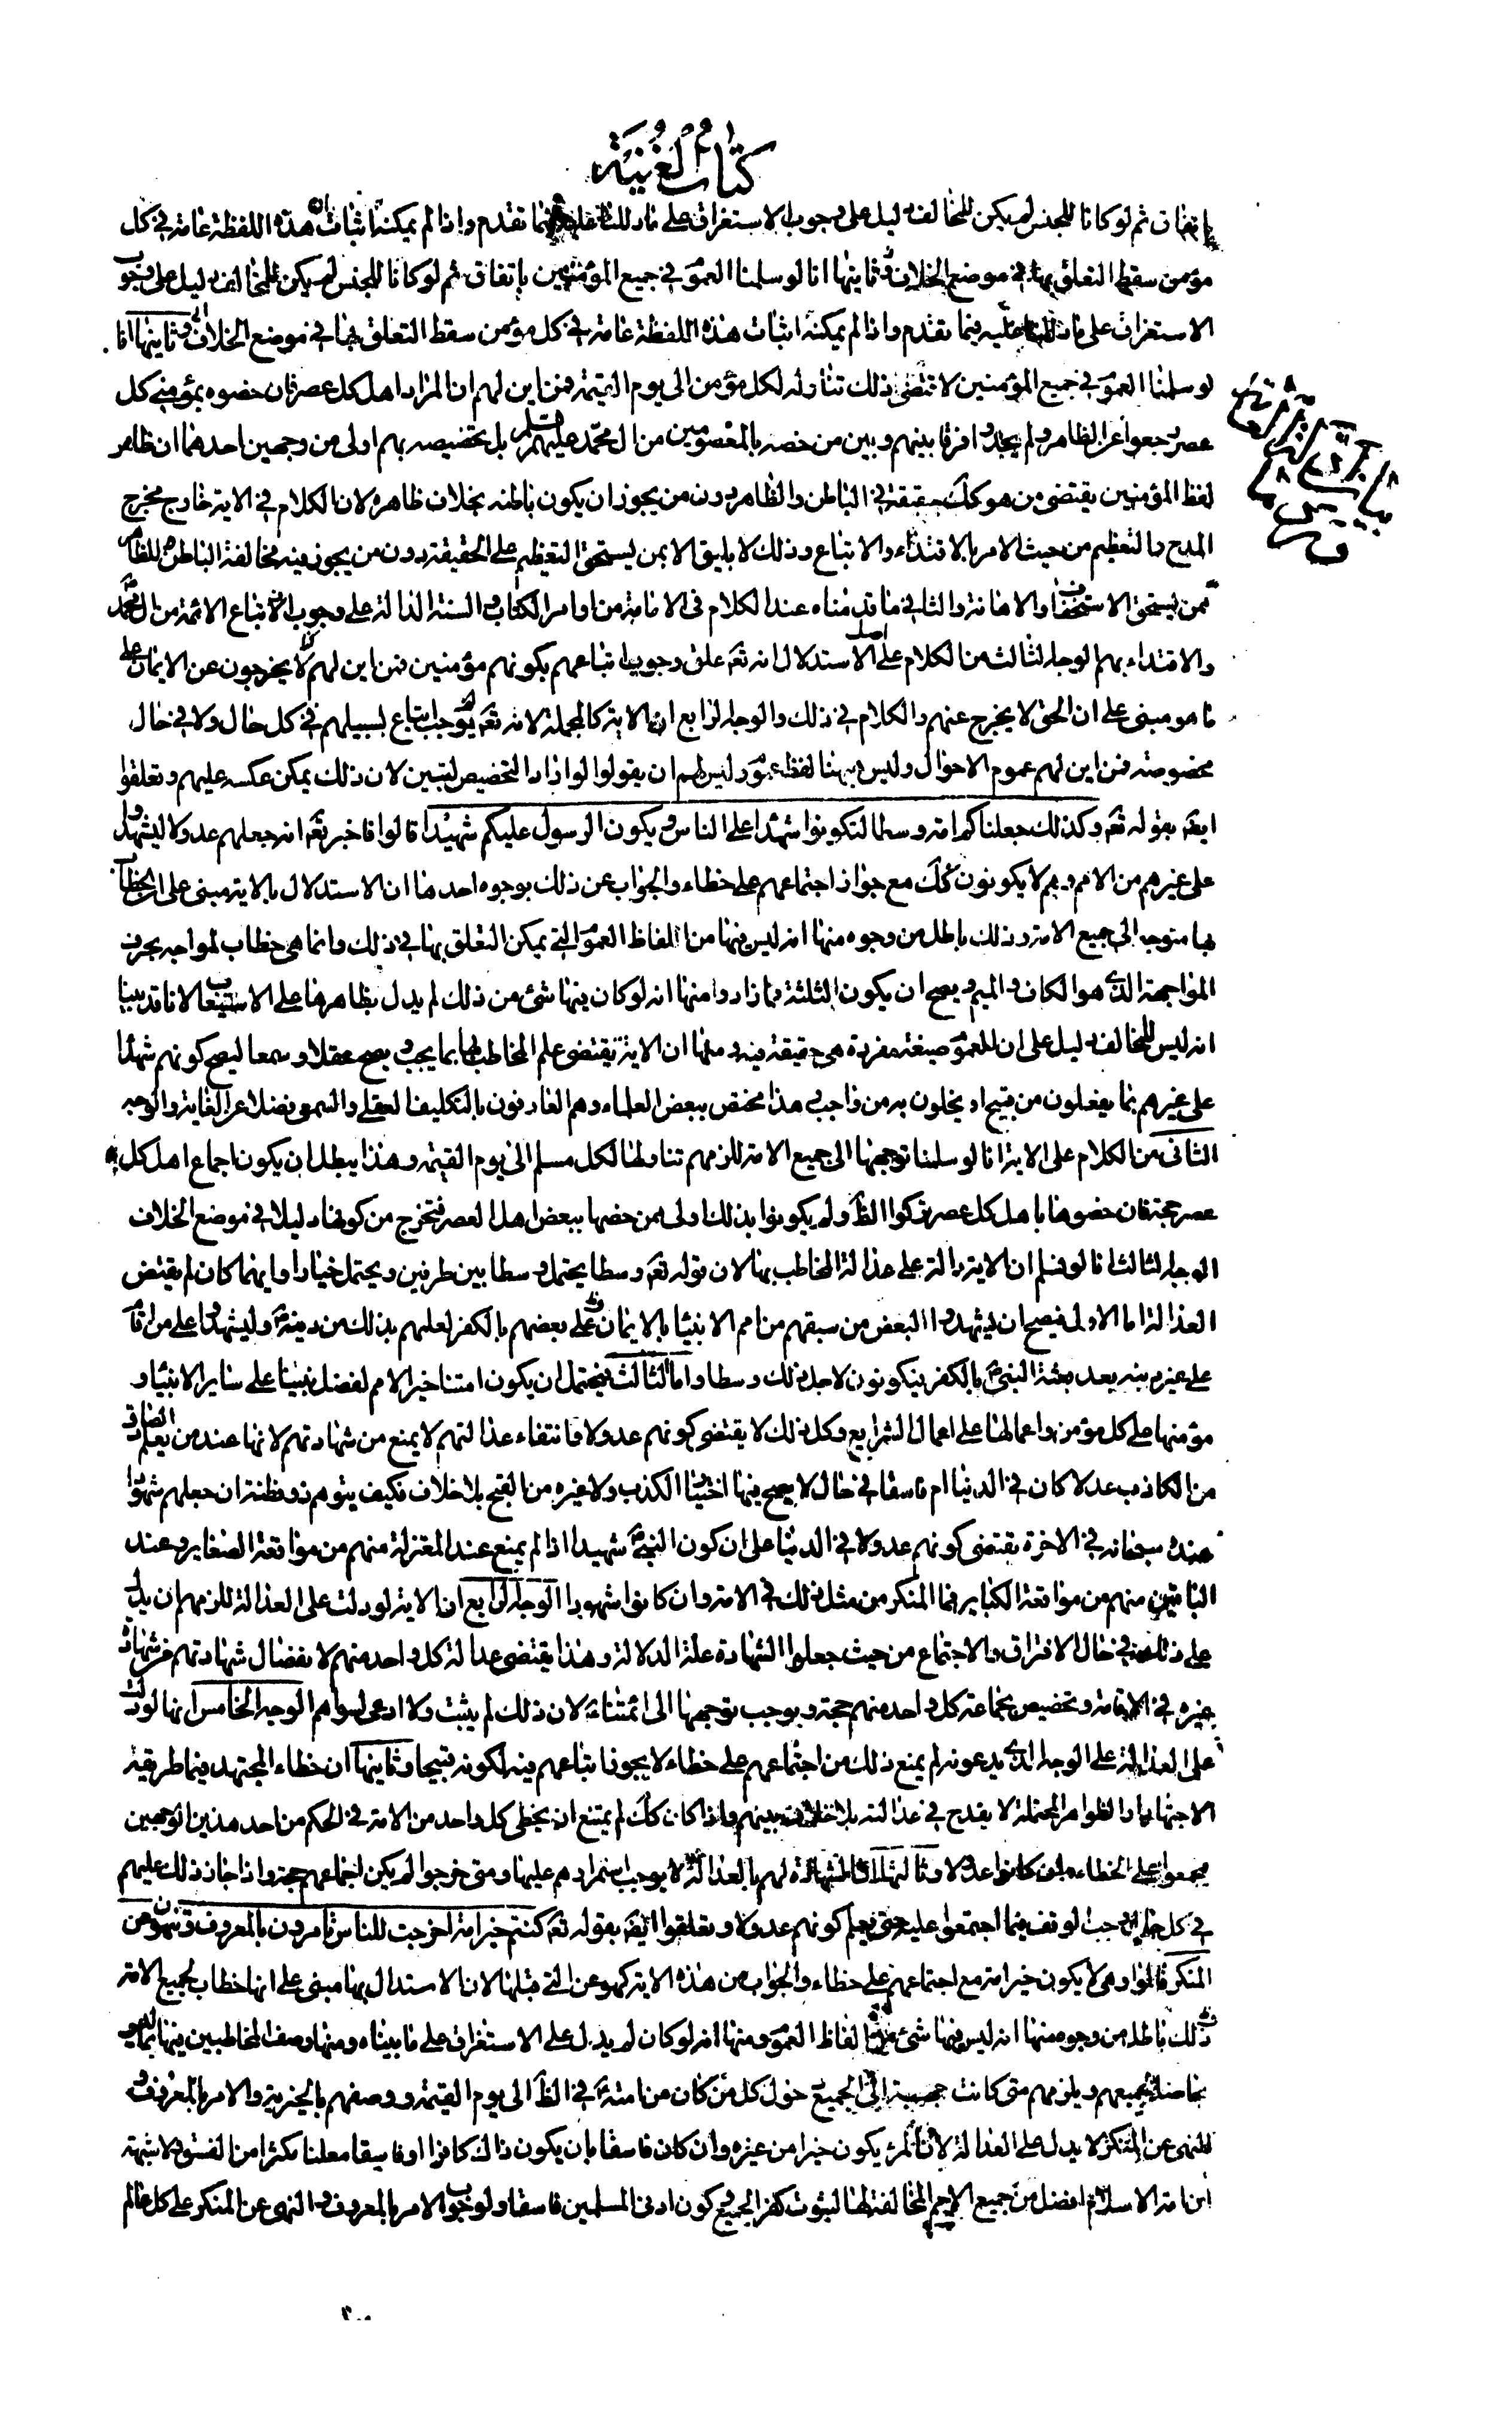 كتاب الغنية
باتفاق ثم لو كانا للجنس لم يكن للمخالف دليل على وجوب الاستغراق على ما دللنا عليه فيما تقدم واذا لم يمكنه اثبات هذه اللفظة عامة في كل
مؤمن سقط التعلق بها في موضع الخلاف وثانيها انا لو سلمنا العموم في جميع المؤمنين باتفاق ثم لو كانا للجنس لم يكن للمخالف دليل على وجوب
الاستغراق على ما دللنا عليه فيما تقدم واذا لم يمكنه اثبات هذه اللفظة عامة في كل مؤمن سقط التعلق بها في موضع الخلاف وثانيها انا
لو سلمنا العموم في جميع المؤمنين لاقتضى ذلك تناوله لكل مؤمن الى يوم القيمة فمن اين لهم ان المراد اهل كل عصر فان خصوه بمؤمني كل
عصر رجعوا عن الظاهر ولم يجدوا فرقا بينهم وبين من خصه بالمعصومين من ال محمد عليهم السلم بل تخصيصه بهم اولى من وجهين احدهما ان ظاهر
لفظ المؤمنين يقتضى من هو كك حقيقة في الباطن والظاهر دون من يجوز ان يكون باطنه بخلاف ظاهره لان الكلام في الاية خارج مخرج
المدح والتعظيم من حيث الامر بالاقتداء والاتباع وذلك لا يليق الا بمن يستحق التعظيم على الحقيقة دون من يجوز فيه مخالفة الباطن للظاهر
ممن يستحق الاستخفاف والاهانة والثاني ما قدمناه عند الكلام فى الامامة من اوامر الكتاب والسنة الدالة على وجوب الاتباع الائمة من ال محمد
والاقتداء بهم الوجه الثالث من الكلام على اصل الاستدلال انه تعم علق وجوب اتباعهم بكونهم مؤمنين فمن اين لهم انهم لا يخرجون عن الايمان على
ما هو مبنى على ان الحق لا يخرج عنهم والكلام في ذلك والوجه الرابع ان الاية كالمجملة لانه تعم لم يوجب اتباع لسبيلهم في كل حال ولا في حال
مخصوصة فمن اين لهم عموم الاحوال وليس ههنا لفظ عموم وليس لهم ان يقولوا لو اراد التخصيص لتبين لان ذلك يمكن عكسه عليهم وتعلقوا
ايضه بقوله تعم وكذلك جعلناكم امة وسطا لتكونوا شهداء على الناس ويكون الرسول عليكم شهيدا قالوا فاخبر تعم انه جعلهم عدولا ليشهدوا
على غيرهم من الامم وهم لا يكونون كك مع جواز اجتماعهم على خطاء والجواب عن ذلك بوجوه احدها ان الاستدلال بالاية مبنى على ان الخطاب
بها متوجه الى جميع الامة وذلك باطل من وجوه منها انه ليس فيها من الفاظ العموم التي يمكن التعلق بها في ذلك وانما هى خطاب لمواجه بحرف
المواجهة الذى هو الكاف والميم ويصح ان يكون الثلثة فما زاد ومنها انه لو كان فيها شئ من ذلك لم يدل بظاهرها على الاستيعاب لانا قد بينا
انه ليس للمخالف دليل على ان للعموم صيغة مفردة هى حقيقة فيه ومنها ان الاية تقتضى علم المخاطب بها بما يجب ويصح عقلا وسمعا ليصح كونهم شهداء
على غيرهم بما يفعلون من قبيح او يخلون به من واجب وهذا مختص ببعض العلماء وهم العارفون بالتكليف العقلى والسمعى فضلا عن الغاية والوجه
الثانى من الكلام على الاية انا لو سلمنا توجهها الى جميع الامة للزمهم تناولها لكل مسلم الى يوم القيمة وهذا يبطل ان يكون اجماع اهل كل
عصر حجة فان خصوها باهل كل عصر تركوا الظ ولم يكونوا بذلك اولى ممن خصها ببعض اهل العصر فتخرج من كونها دليلا في موضع الخلاف
الوجه الثالث انا لو نسلم ان الاية دالة على عدالة المخاطب بها لان قوله تعم وسطا يحتمل وسطا بين طرفين ويحتمل خيارا وايهما كان لم يقتض
العدالة اما الاولى فيصح ان يشهدوا البعض من سبقهم من امم الانبياء بالايمان وعلى بعضهم بالكفر لعلمهم بذلك من دينه وليشهدوا على من اقام
على غير دينه بعد بعثة النبى بالكفر فيكونون لاجل ذلك وسطا واما الثالث فيحتمل ان يكون امتنا خير الامم لفضل نبينا على ساير الانبياء و
مؤمنها على كل مؤمن واعمالها على اعمال الشرايع وكل ذلك لا يقتضى كونهم عدولا فانتفاء عدالتهم لا يمنع من شهادتهم لانها عند من يعلم الصادق
من الكاذب عدلا كان في الدنيا ام فاسقا في حال لا يصح فيها اختيار الكذب ولا غيره من القبح بلا خلاف فكيف يتوهم ذو فطنة ان جعلهم شهودا
عنده سبحانه في الاخرة يقتضى كونهم عدولا في الدنيا على ان كون النبى شهيدا اذا لم يمنع عند المعتزلة منهم من مواقعة الصغاير وعند
الباقين منهم من مواقعة الكباير فما المنكر من مثل ذلك في الامة وان كانوا شهودا الوجه الرابع ان الاية لو دلت على العدالة للزمهم ان يدل
على ذلك في حال الافتراق والاجتماع من حيث جعلوا الشهادة علة الدلالة وهذا يقتضى عدالة كل واحد منهم لانفصال شهادتهم من شهادة
غيره في الاقامة وتخصيص بجماعة كل واحد منهم حجة ويوجب توجهها الى ائمتنا لان ذلك لم يثبت ولا ادعى لسواهم الوجه الخامس انها لو دلت
على العدالة على الوجه الذى يدعونه لم يمنع ذلك من اجتماعهم على خطاء لا يجوز اتباعهم فيه لكونه قبيحا وثانيها ان خطاء المجتهد فيما طريقه
الاجتهاد والظواهر المحتملة لا يقدح في عدالته بلا خلاف بينهم واذا كان كك لم يمتنع ان يخطى كل واحد من الامة في الحكم من احد هذين الوجهين
يجمعوا على الخطاء وان كانوا عدولا وثالثها ان الشهادة لهم بالعدالة لا يوجب استمرارهم عليها ومتى خرجوا لم يكن اجماعهم حجة واذا جاز ذلك عليهم
في كل حال وجب الوقف فيما اجتمعوا عليه حتى يعلم كونهم عدولا وتعلقوا ايضه بقوله تعم كنتم خير امة اخرجت للناس تامرون بالمعروف وتنهون عن
المنكر قالوا وهى لا يكون خير امة مع اجتماعهم على خطاء والجواب عن هذه الاية كهو عن التي قبلها لانا الاستدلال بها مبنى على انها خطاب لجميع الامة
وذلك باطل من وجوه منها انه ليس فيها شئ من الفاظ العموم ومنها انه لو كان لم يدل على الاستغراق على ما بيناه ومنها وصف المخاطبين فيها بما ليس
بحاصل لجميعهم ويلزمهم متى كانت الى الجميع دخول كل من كان من امته في الظ الى يوم القيمة ووصفهم بالخيرية والامر بالمعروف و
النهى عن المنكر لا يدل على العدالة لان المرء يكون خيرا من غيره وان كان فاسقا بان يكون ذاك كافرا او فاسقا معلنا مكثرا من الفسوق ولا شبهة
ان امة الاسلام افضل من جميع الامم المخالفة لها لثبوت كفر الجميع وكون ادنى المسلمين فاسقا ولوجوب الامر بالمعروف والنهى عن المنكر على كل عالم